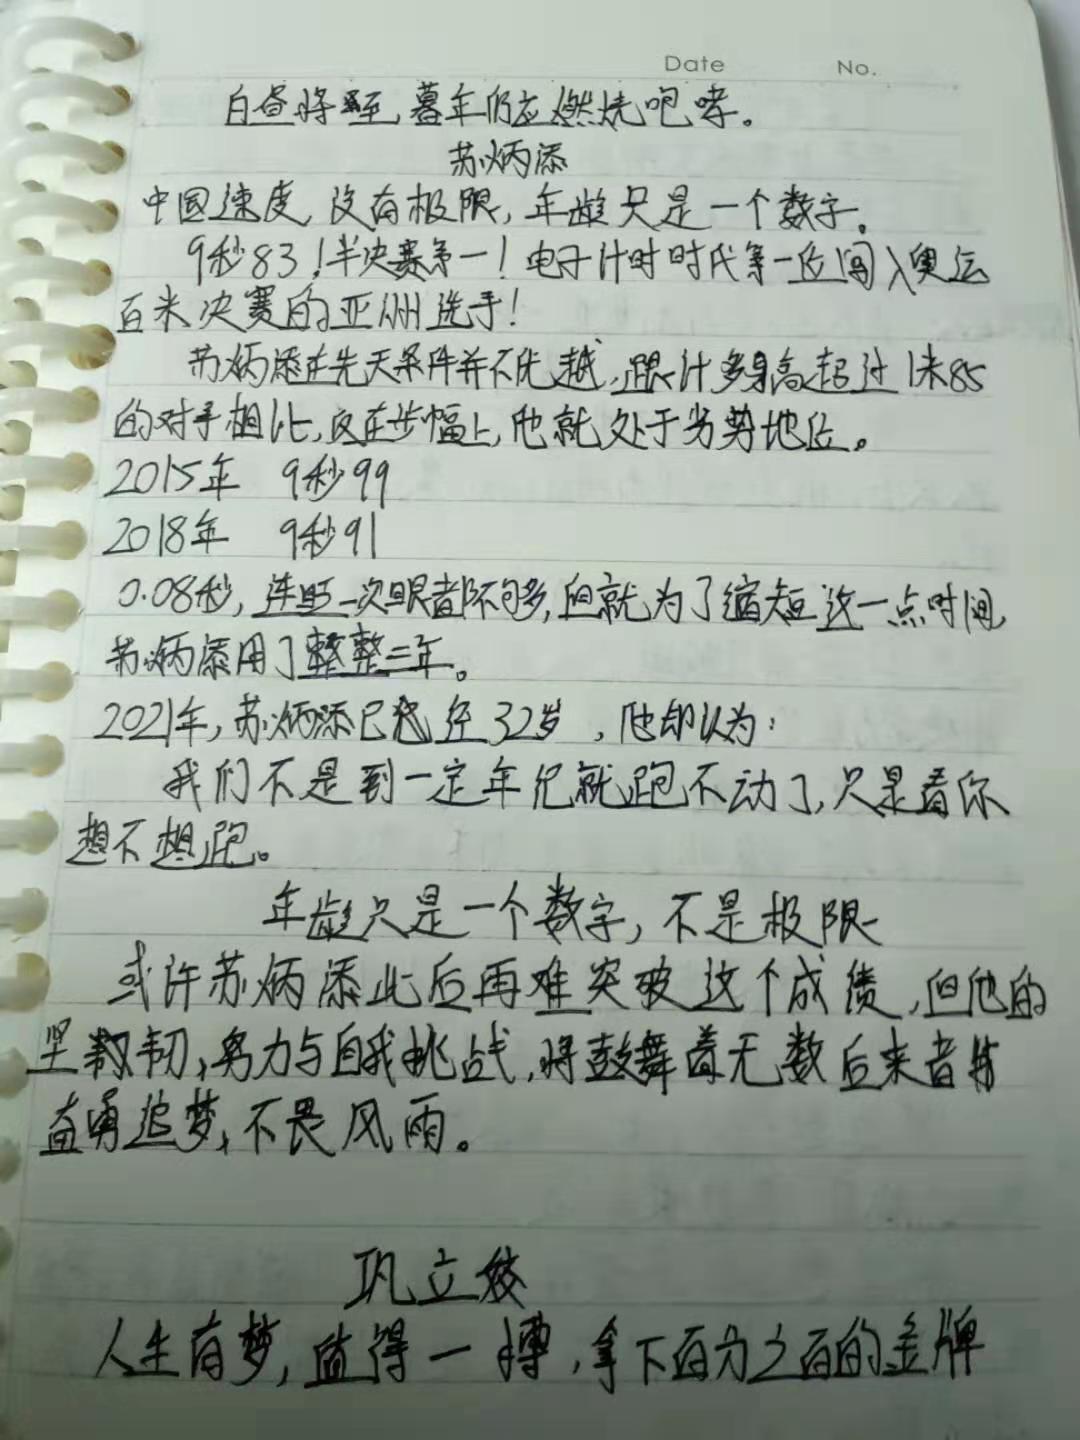 Date No.
白昼将至,暮年仍应燃烧咆哮。
苏炳添
中国速度,没有极限,年龄只是一个数字。
9秒83!半决赛第一!电子计时时代第一位闯入奥运
百米决赛的亚洲选手!
苏炳添在先天条件并不优越,跟许多身高超过1米85
的对手相比,仅在步幅上,他就处于劣势地位。
2015年 9秒99
2018年 9秒91
0.08秒,连眨一次眼都不够,但就为了缩短这一点时间,
苏炳添用了整整三年。
2021年,苏炳添已经32岁,他却认为:
我们不是到一定年纪就跑不动了,只是看你
想不想跑。
年龄只是一个数字,不是极限
或许苏炳添此后再难突破这个成绩,但他的
坚韧,努力与自我挑战,将鼓舞着无数后来者
奋勇追梦,不畏风雨。
巩立姣
人生有梦,值得一搏,拿下百分之百的金牌